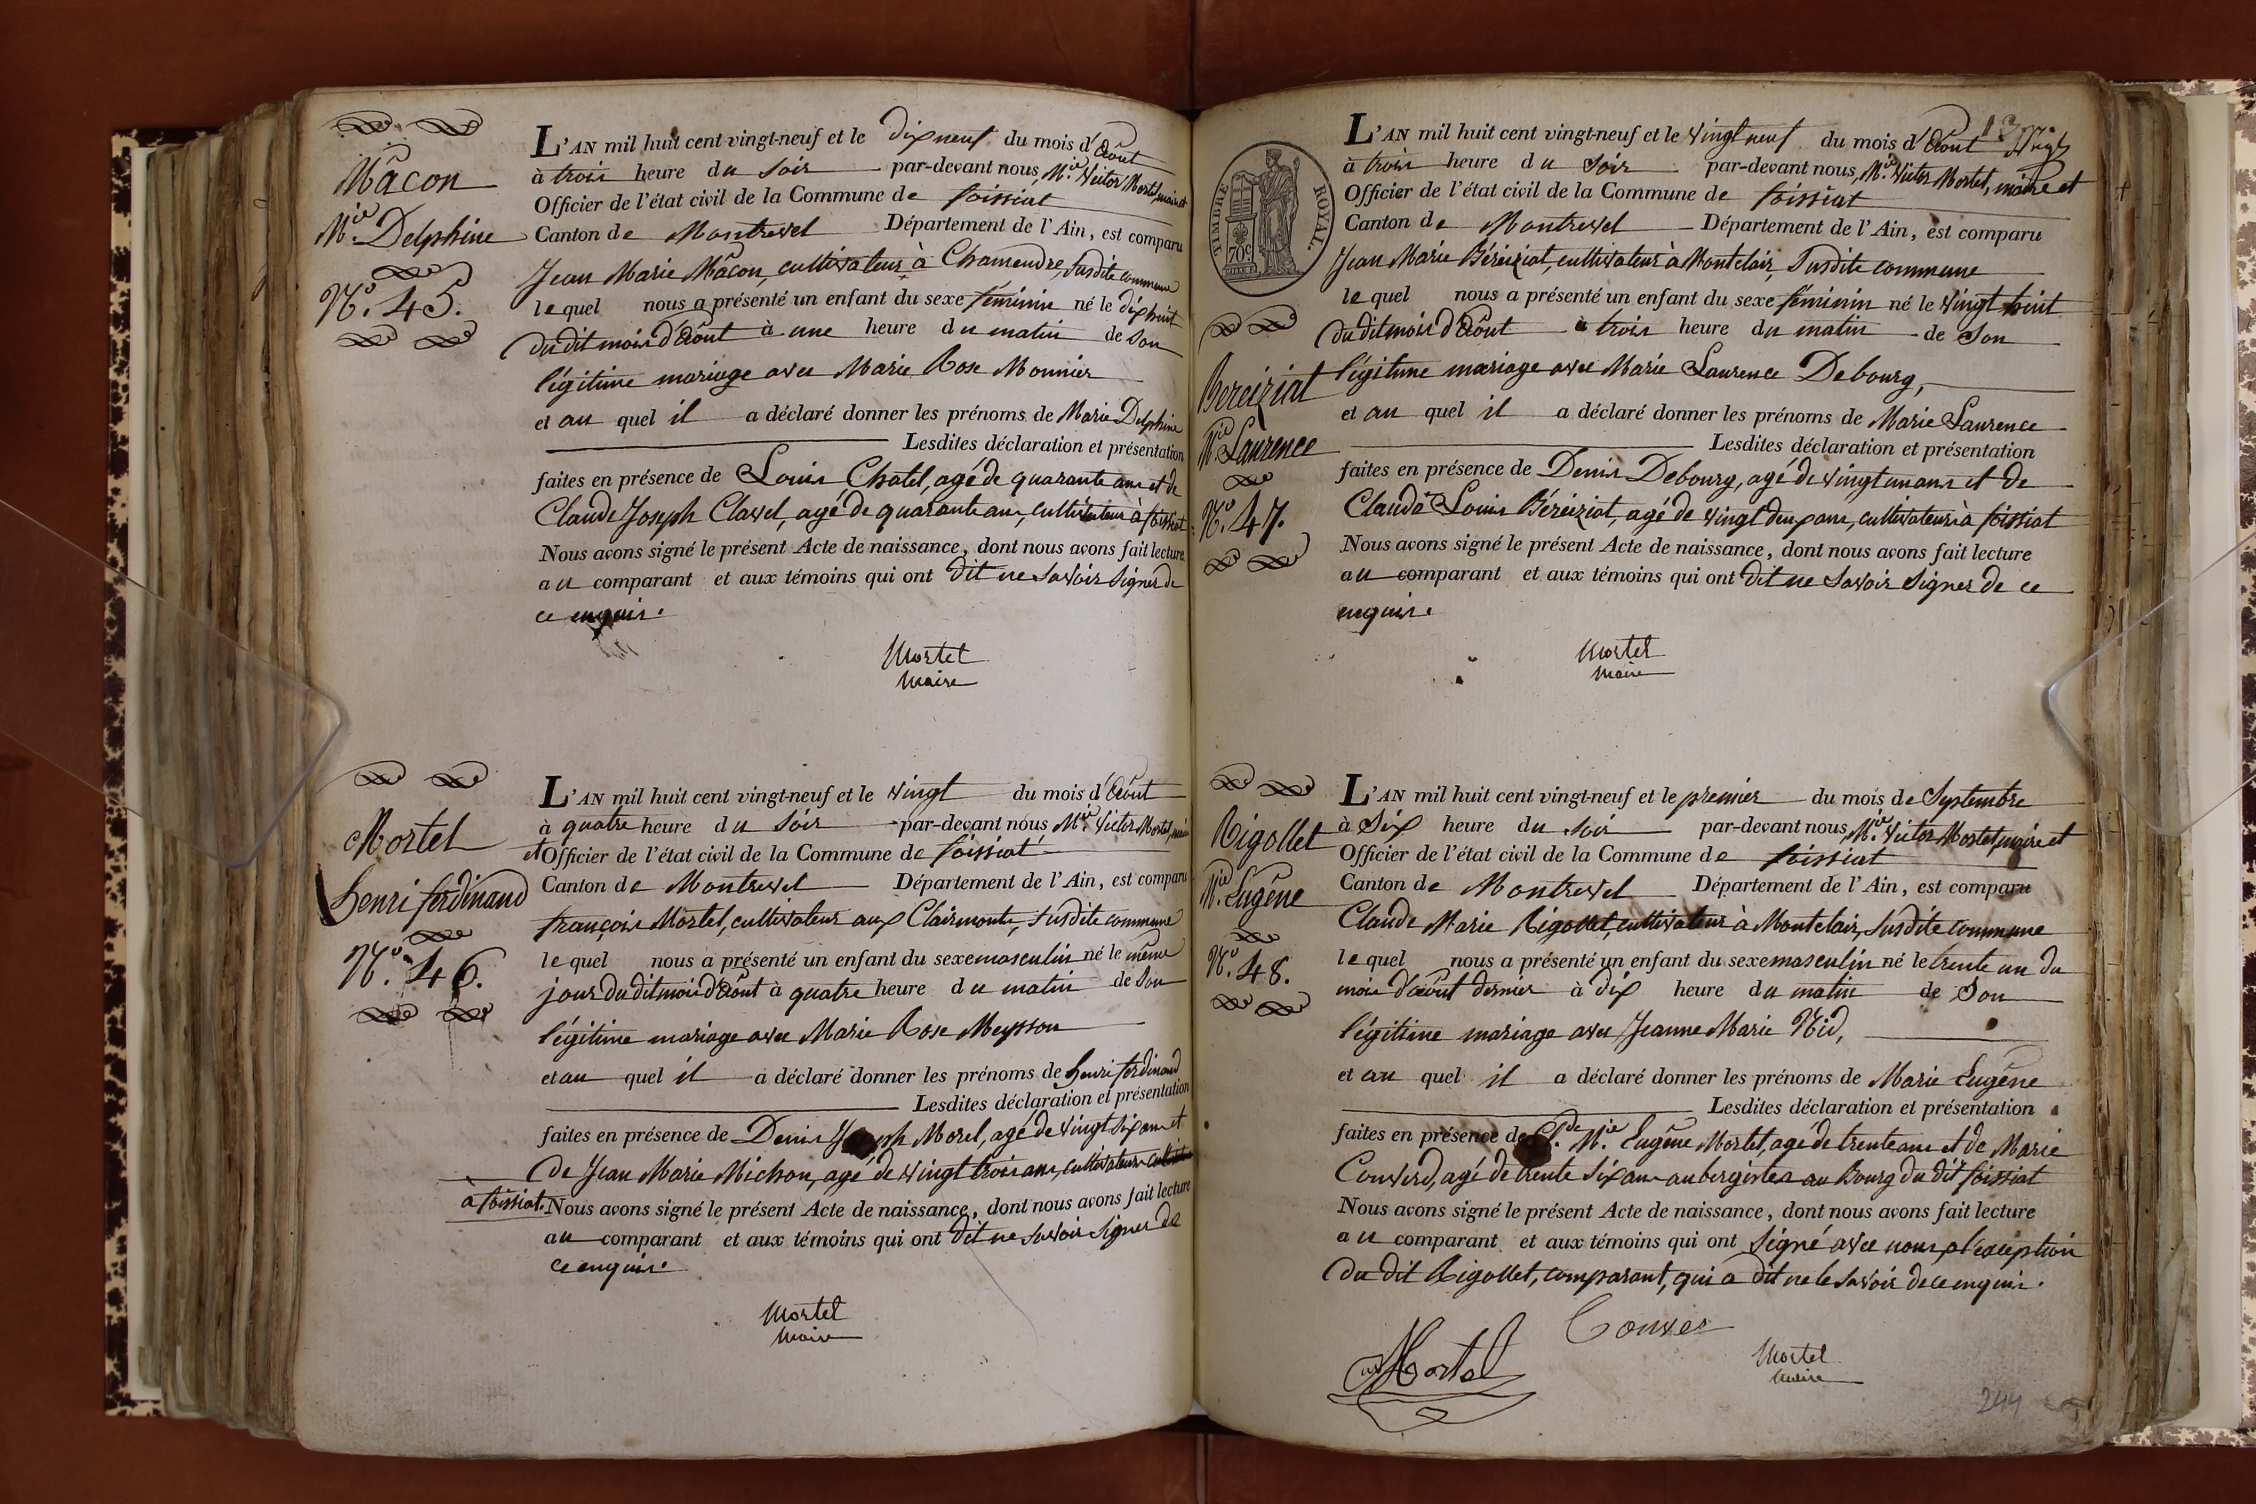 Mâcon
Mie Delphine
No. 45.
L'AN mil huit cent vingt-neuf et le dix neuf du mois d'Août
à trois heure du soir par-devant nous, Mie Victor Mortel, maire et
Officier de l'état civil de la Commune de foissiat
Canton de Montrevel Département de l'Ain, est comparu
Jean Marie Mâcon, cultivateur à Chamendre, susdite commune
lequel nous a présenté un enfant du sexe féminin né le dix huit
du dit mois d'Août à une heure du matin de son
légitime mariage avec Marie Rose Monnier
et au quel il a déclaré donner les prénoms de Marie Delphine
Lesdites déclaration et présentation
faites en présence de Louis Chatel, agé de quarante ans et de
Claude Joseph Clavel, agé de quarante ans, cultivateurs à foissiat
Nous avons signé le présent Acte de naissance, dont nous avons fait lecture
au comparant et aux témoins qui ont dit ne savoir signer de
ce enquis.
Mortel
Maire
Mortel
henri ferdinand
No. 46.
L'AN mil huit cent vingt-neuf et le vingt du mois d'Août
à quatre heure du soir par-devant nous Mie Victor Mortel, maire
et Officier de l'état civil de la Commune de foissiat
Canton de Montrevel Département de l'Ain, est comparu
françois Mortel, cultivateur aux Clairmonts, susdite commune
lequel nous a présenté un enfant du sexe masculin né le même
jour du dit mois d'Août à quatre heure du matin de son
légitime mariage avec Marie Rose Meysson
et au quel il a déclaré donner les prénoms de henri ferdinand
Lesdites déclaration et présentation
faites en présence de Denis Joseph Morel, agé de vingt six ans et
de Jean Marie Michon, agé de vingt trois ans, cultivateurs
à foissiat. Nous avons signé le présent Acte de naissance, dont nous avons fait lecture
au comparant et aux témoins qui ont dit ne savoir signer de
ce enquis.
Mortel
Maire
13
TIMBRE ROYAL.
70c.
Bereiziat
Mie Laurence
No. 47.
L'AN mil huit cent vingt-neuf et le vingt neuf du mois d'Août
à trois heure du soir par-devant nous, Mie Victor Mortel, maire et
Officier de l'état civil de la Commune de foissiat
Canton de Montrevel Département de l'Ain, est comparu
Jean Marie Béreiziat, cultivateur à Montclair, susdite commune
lequel nous a présenté un enfant du sexe féminin né le vingt huit
du dit mois d'Août à trois heure du matin de son
légitime mariage avec Marie Laurence Debourg,
et au quel il a déclaré donner les prénoms de Marie Laurence
Lesdites déclaration et présentation
faites en présence de Denis Debourg, agé de vingt un ans et de
Claude Louis Béréiziat, agé de vingt deux ans, cultivateurs à foissiat
Nous avons signé le présent Acte de naissance, dont nous avons fait lecture
au comparant et aux témoins qui ont dit ne savoir signer de ce
enquis.
Mortel
Maire
Rigollet
Mie Eugêne
No. 48.
L'AN mil huit cent vingt-neuf et le premier du mois de Septembre
à Six heure du soir par-devant nous, Mie Victor Mortel, maire et
Officier de l'état civil de la Commune de foissiat
Canton de Montrevel Département de l'Ain, est comparu
Claude Marie Rigollet, cultivateur à Montclair, susdite commune
lequel nous a présenté un enfant du sexe masculin né le trente un du
mois d'août dernier à dix heure du matin de son
légitime mariage avec Jeanne Marie Nid,
et au quel il a déclaré donner les prénoms de Marie Eugêne
Lesdites déclaration et présentation
faites en présence de Cl.de Mie Eugêne Mortel, agé de trente ans et de Marie
Convierd, agé de trente six ans aubergistes au Bourg du dit foissiat
Nous avons signé le présent Acte de naissance, dont nous avons fait lecture
au comparant et aux témoins qui ont signé avec nous, à l'exception
du dit Rigollet, comparant, qui a dit ne le savoir de ce enquis.
Mortel
Mortel
Maire
244